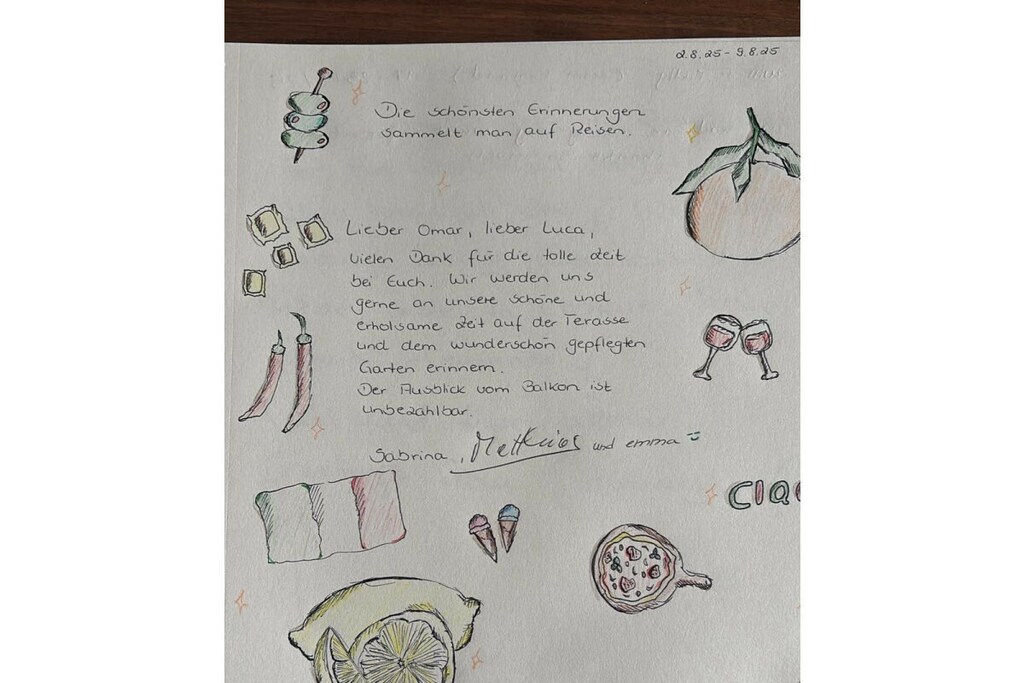 2.8.25 - 9.8.25
Die schönsten Erinnerungen
sammelt man auf Reisen.
Lieber Omar, lieber Luca,
vielen Dank für die tolle Zeit
bei Euch. Wir werden uns
gerne an unsere schöne und
erholsame Zeit auf der Terasse
und dem wunderschön gepflegten
Garten erinnern.
Der Ausblick vom Balkon ist
unbezahlbar.
Sabrina, Matthias und emma
CIAO